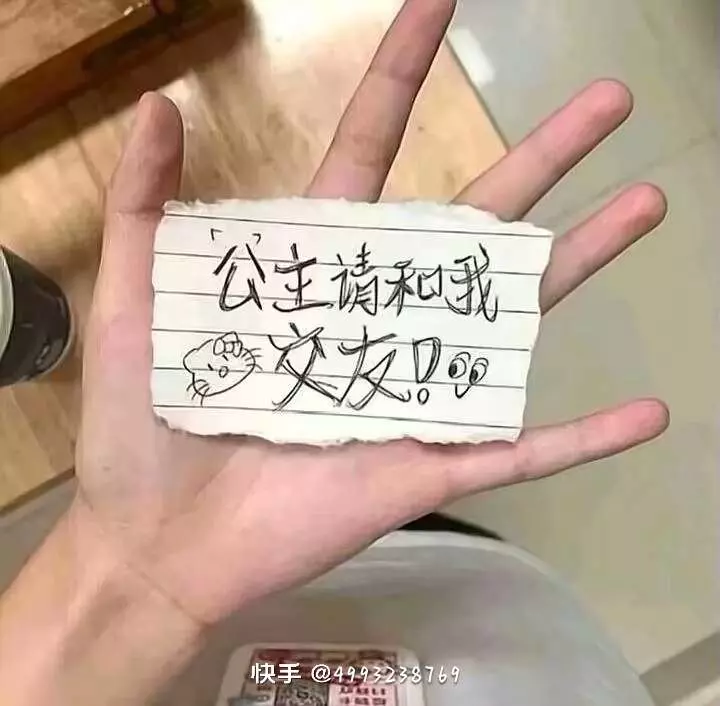 「公」主请和我
交友!
快手 @4993238769